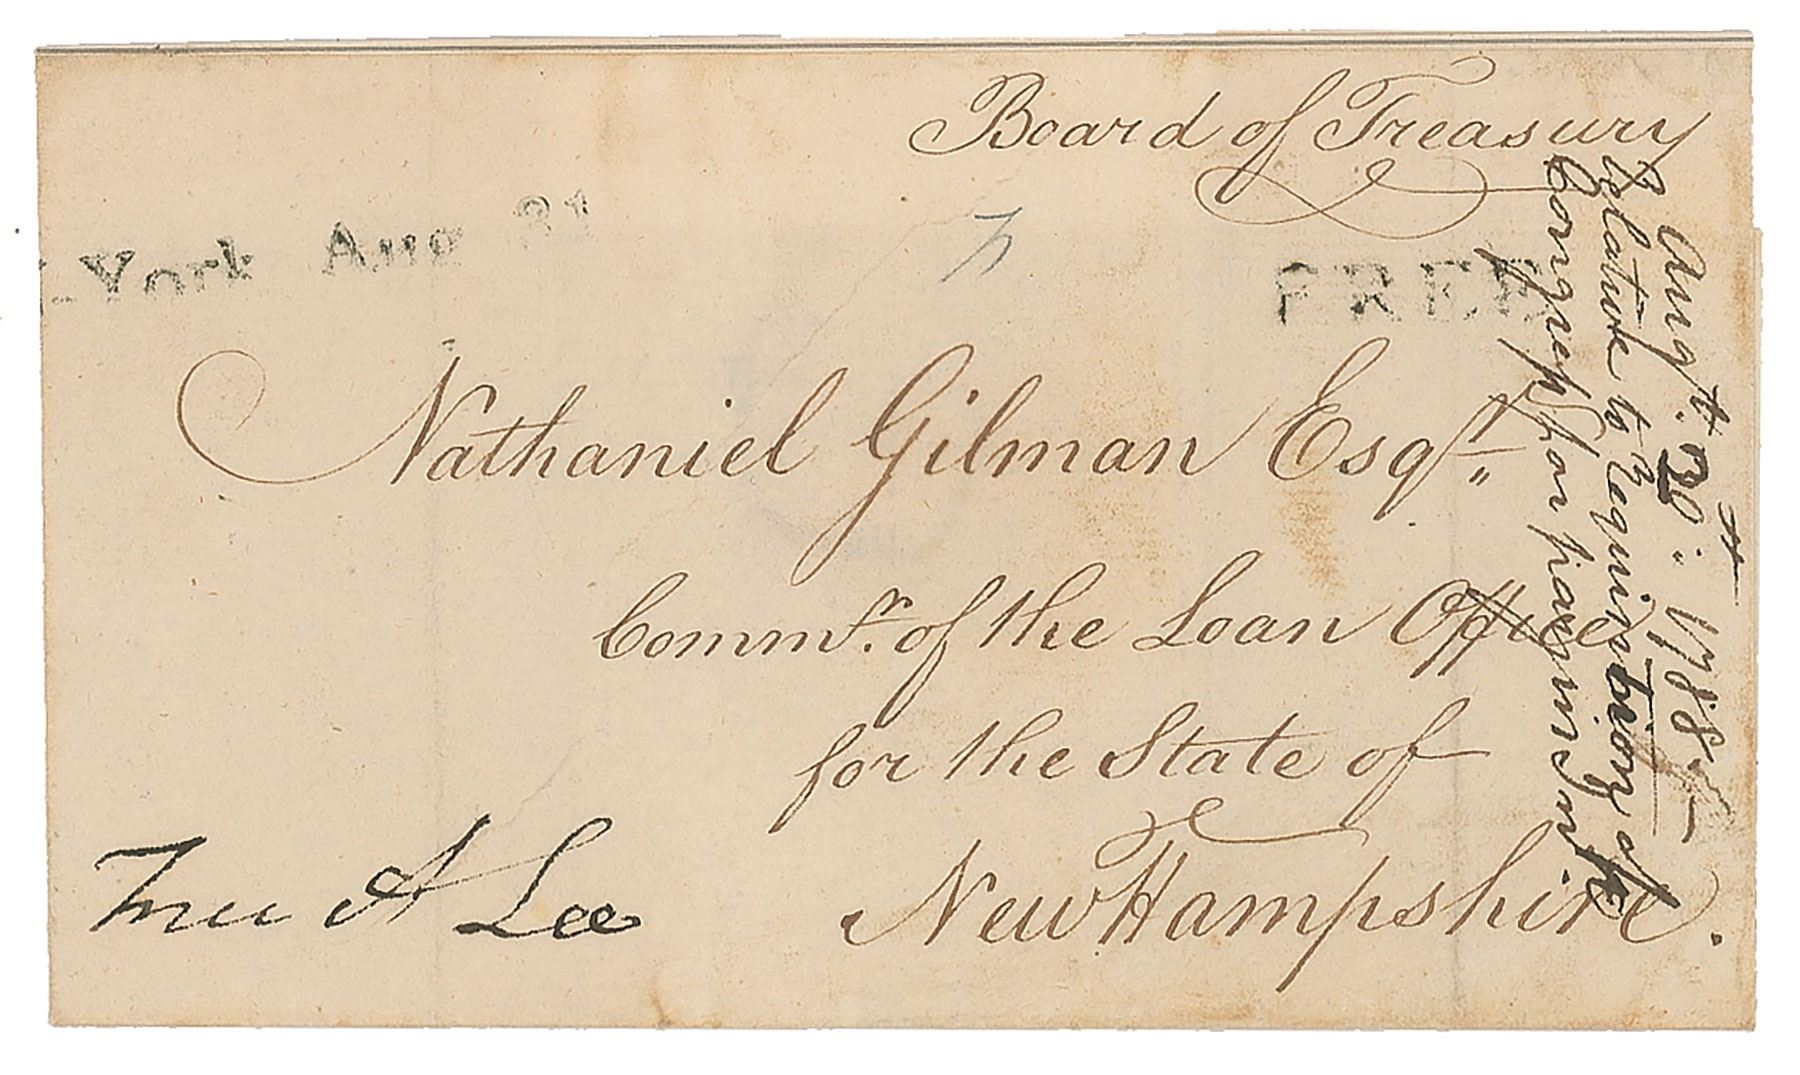 Board of Treasury
-York Aug 31
FREE
Nathaniel Gilman Esqr.
Commr. of the Loan Office
for the State of
New Hampshire.
Free A Lee
Augt. 20: 1788
relative to Requisitions of
Congress for payment